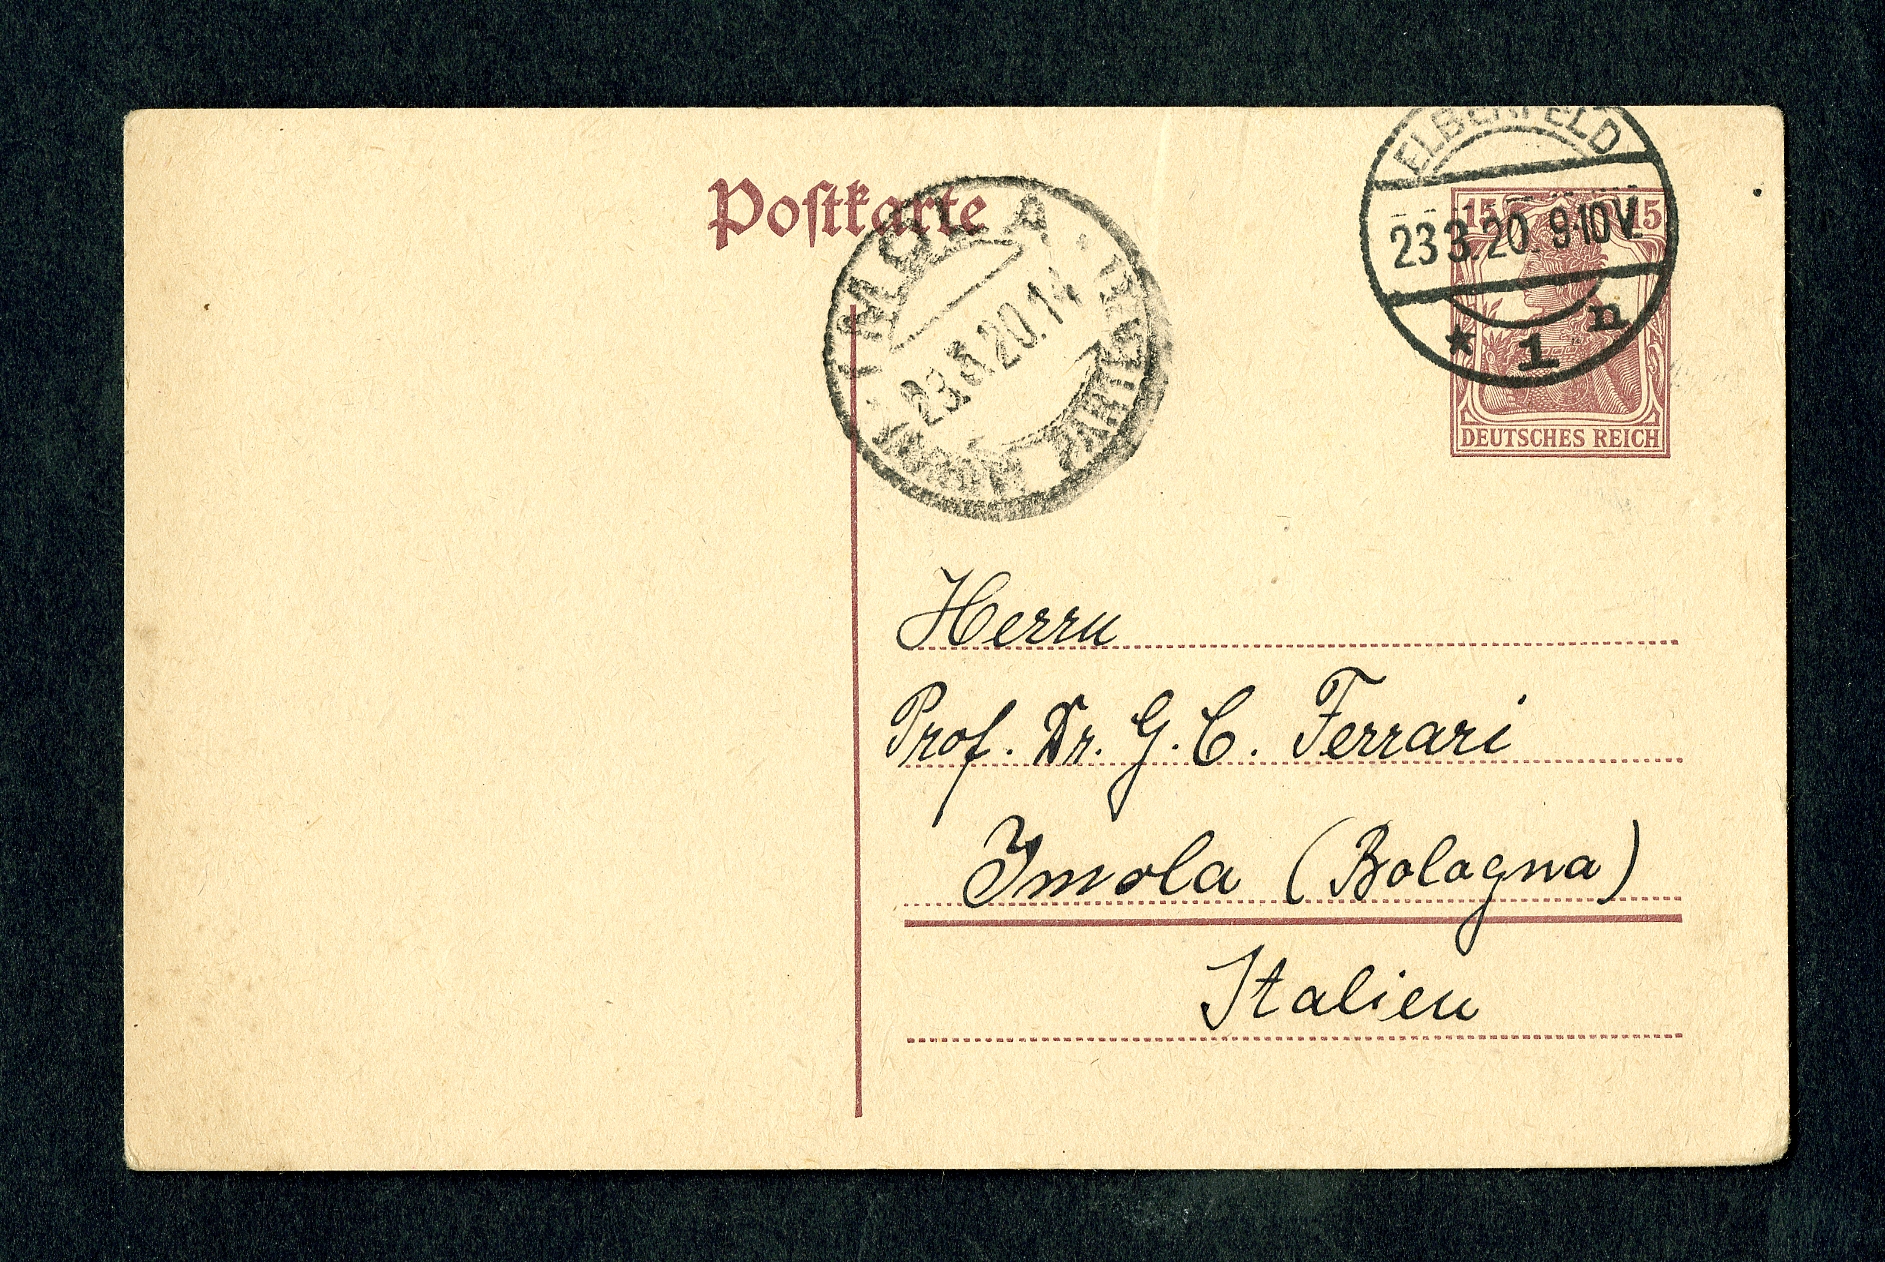 Postkarte
ELBERFELD
23.3.20. 9-10V.
* 1 n
15 15
DEUTSCHES REICH
IMOLA
20.14
Herrn
Prof. Dr. G. C. Ferrari
Imola (Bologna)
Italien